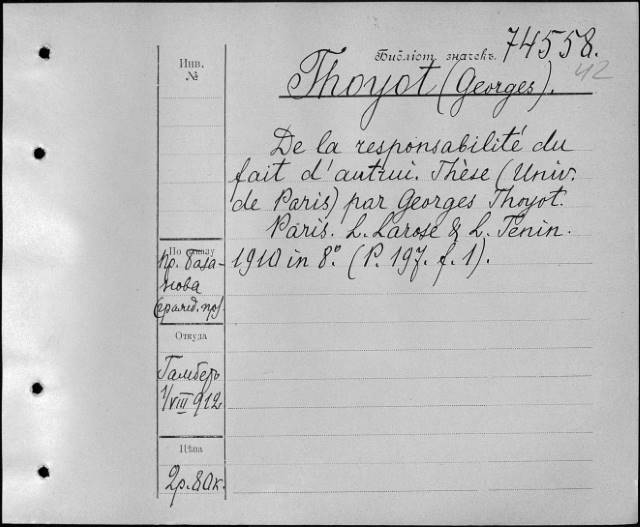 Инв.
№
Библіот. значекъ. 74558.
42
Thoyot (Georges).
De la responsabilité du
fait d'autrui. Thèse (Univ.
de Paris) par Georges Thoyot.
Paris. L. Larose & L. Tenin.
1910 in 8°. (P. 197. f. 1).
По заказу
пр. База-
нова
(гражд. пр).
Откуда
Гамберъ
1/VIII 912
Цѣна
2р. 80к.